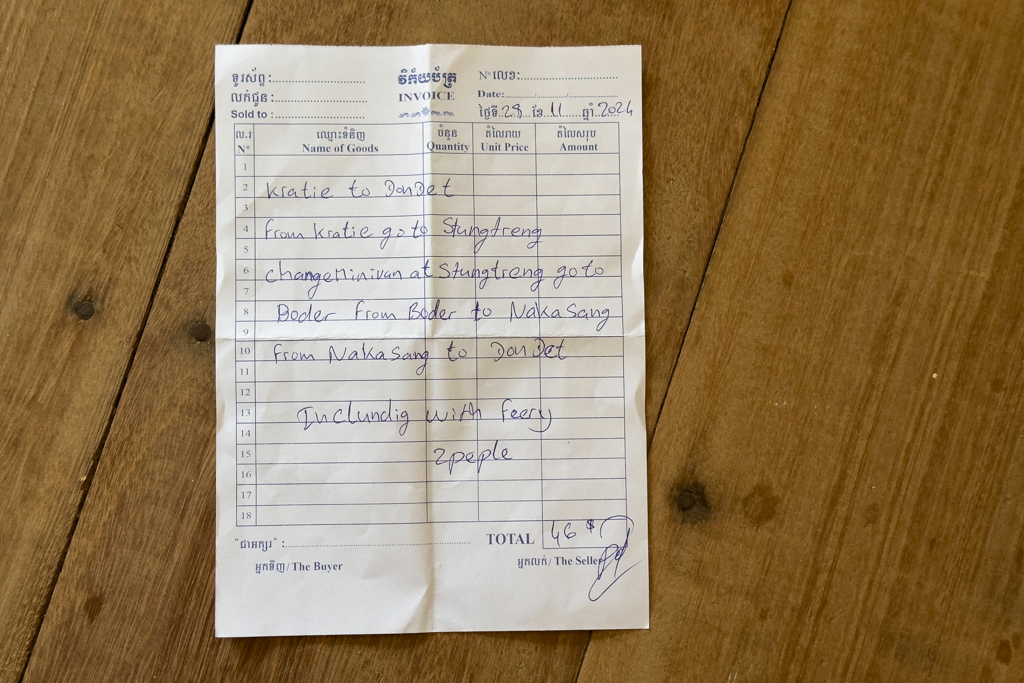 ទូរស័ព្ទ:............................ វិក័យប័ត្រ N° លេខ:............................
លក់ជូន:............................ INVOICE Date:........./........./.........
Sold to :............................ ថ្ងៃទី.28...ខែ.11....ឆ្នាំ.2024
ល.រ ឈ្មោះទំនិញ ចំនួន តំលៃរាយ តំលៃសរុប
N° Name of Goods Quantity Unit Price Amount
1
2 Kratie to DonDet
3
4 From Kratie go to Stungtreng
5
6 Change Minivan at Stungtreng go to
7
8 Boder From Boder to NakaSang
9
10 From NakaSang to DonDet
11
12
13 Inclundig with Feery
14
15 2 peple
16
17
18
"ជាអក្សរ" :............................ TOTAL 46 $
អ្នកទិញ/The Buyer អ្នកលក់/The Seller